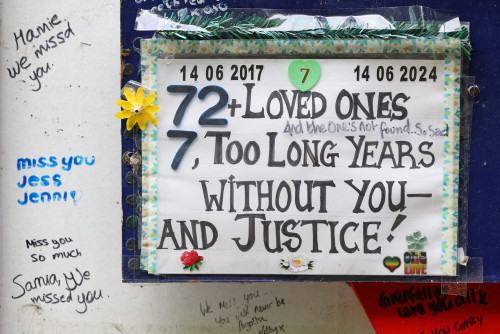 Hamie
We missd
you.
miss you
Jess
Jennie
Miss you
so much
Samia, We
missed you.
14 06 2017
7
14 06 2024
72+ LOVED ONES
And the One's not found. So Sad
7, TOO LONG YEARS
WITHOUT YOU—
AND JUSTICE!
ONE
LOVE
We miss you
you will never be
Grenfell
Love you all x
YOU GARY